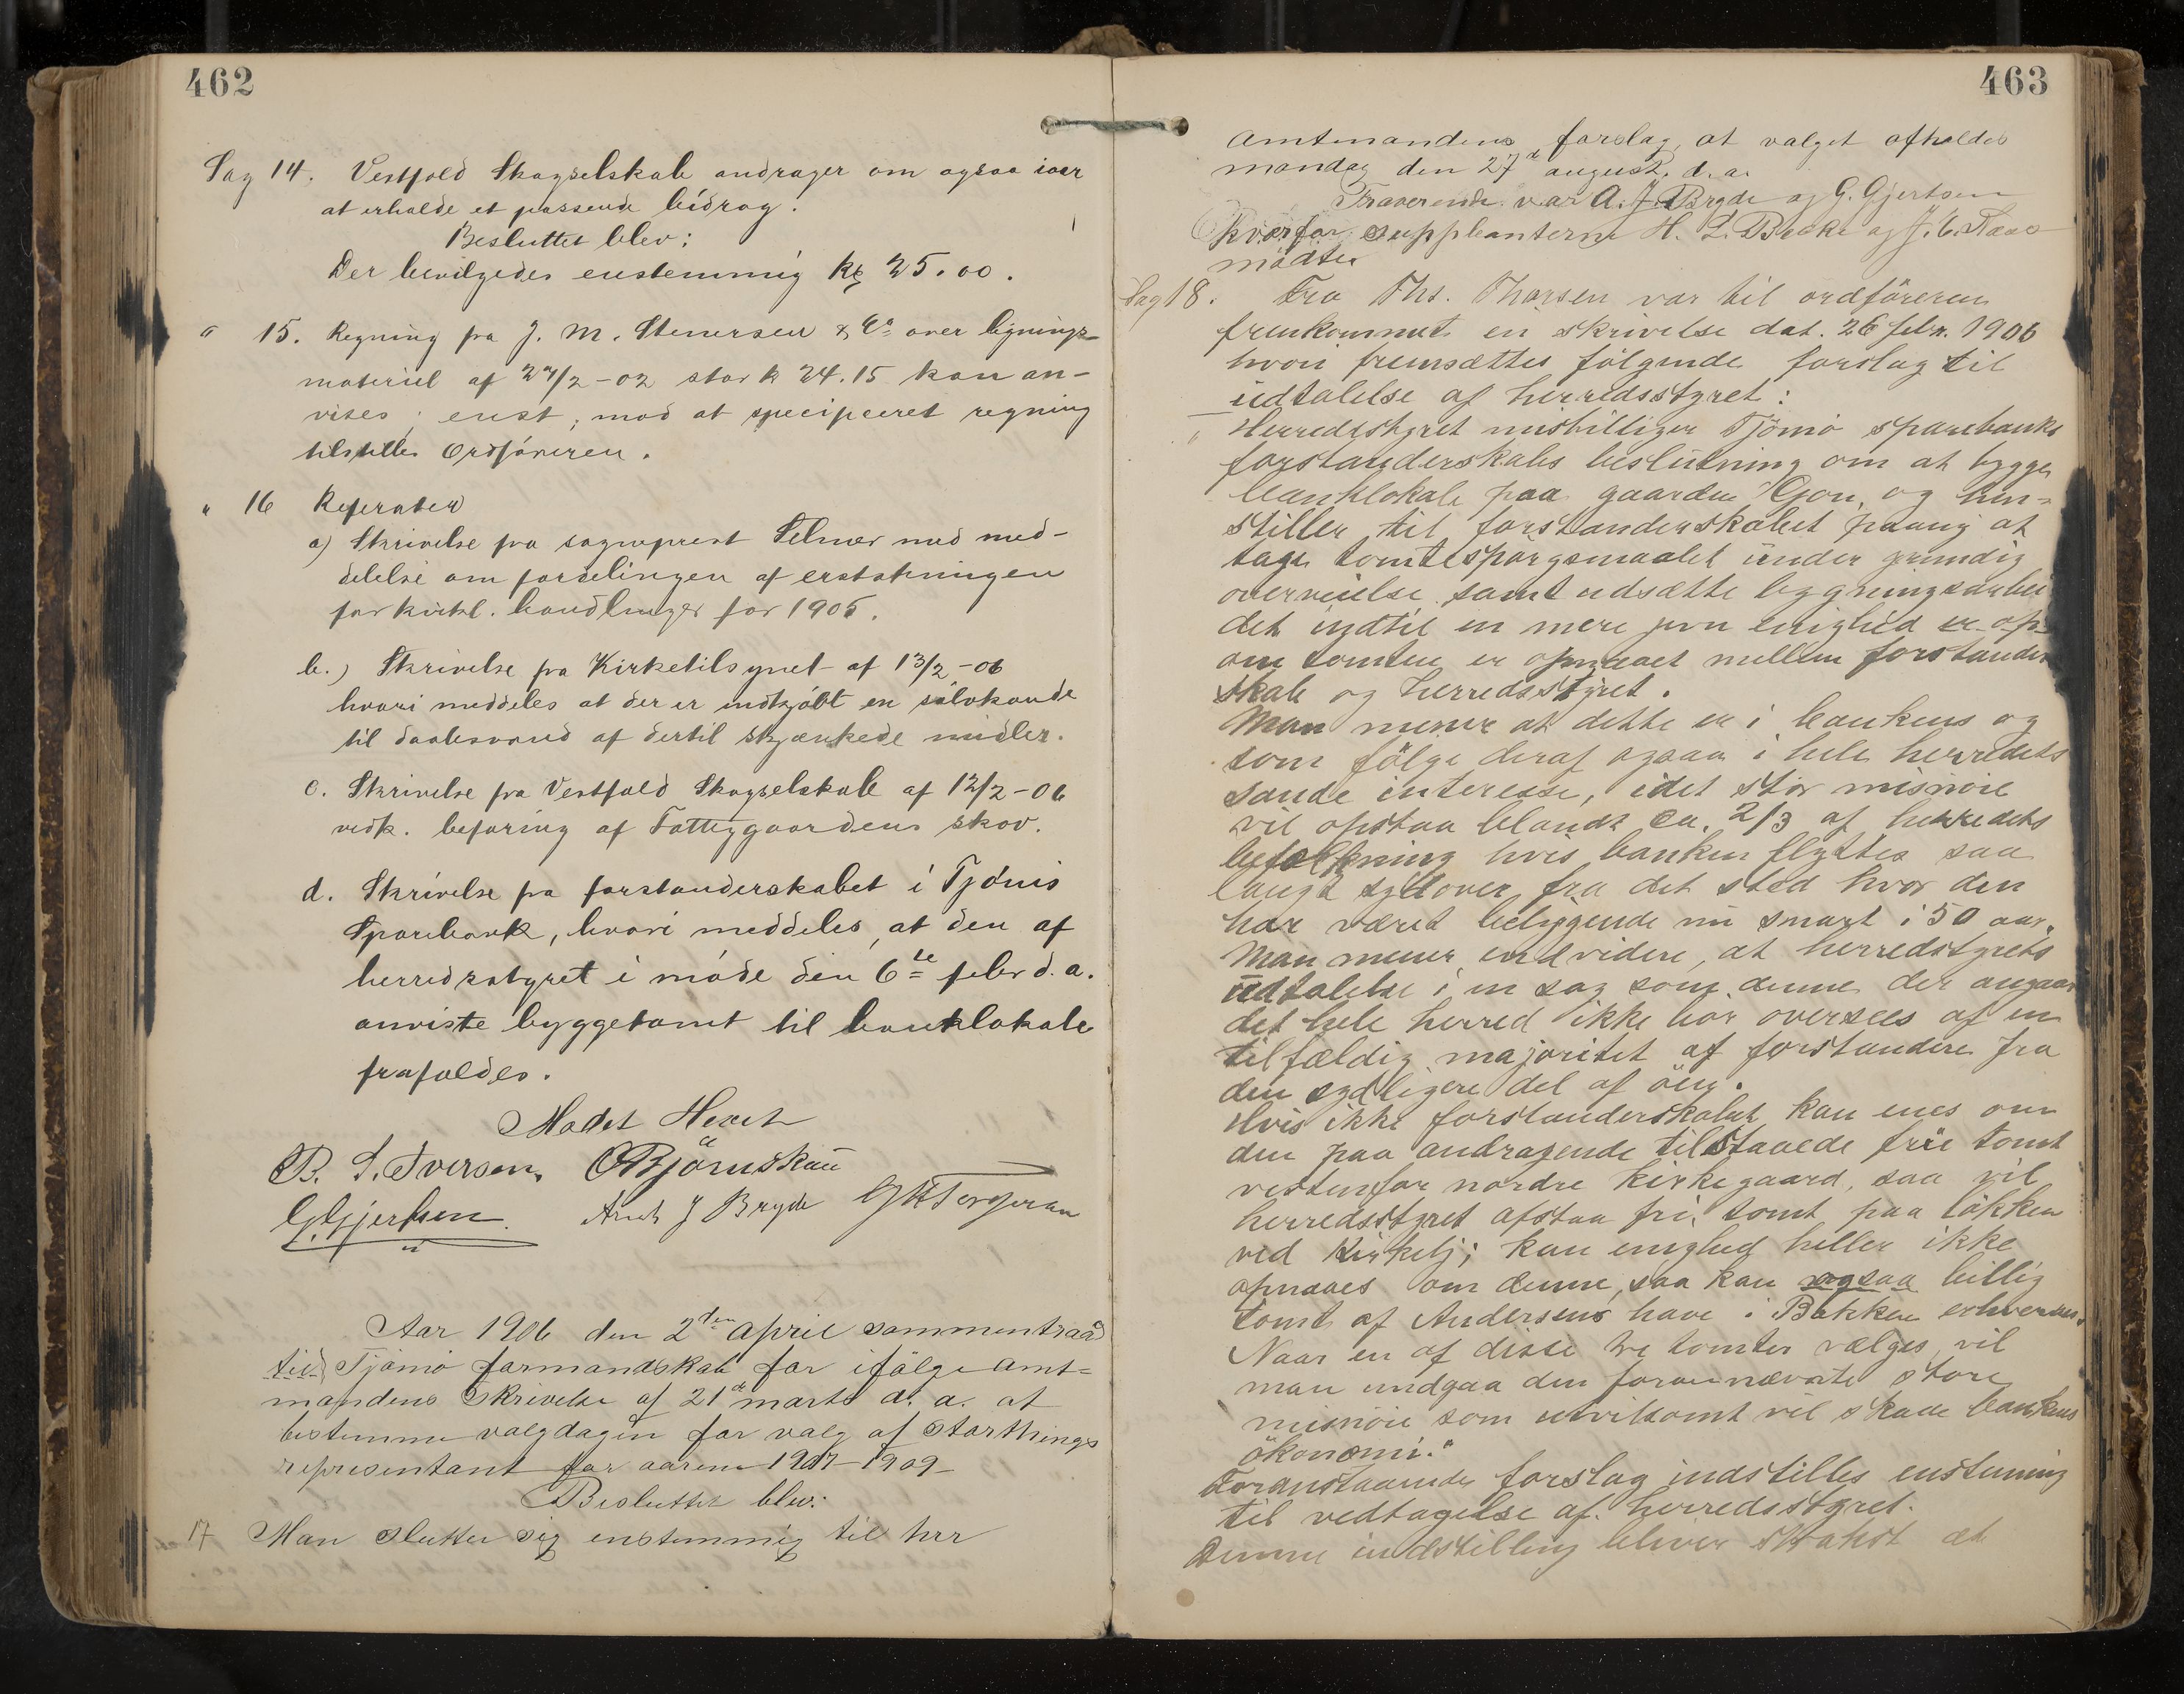 462
Sag 14. Vestfold Skogselskab andrager om ogsaa iaar
at erholde et passende bidrag.
Besluttet blev:
Der bevilgedes enstemmig kr 25.00.
" 15. Regning fra J. M. Stenersen & Co over lignings-
materiel af 27/2-02 stor k 24.15 kan an-
vises; enst; mod at specificeret regning
tilstilles Ordføreren.
" 16 Referater
a) Skrivelse fra sogneprest Selmer med med-
delelse om fordelingen af erstatningen
for kirkl. handlinger for 1905.
b.) Skrivelse fra Kirketilsynet af 13/2-06
hvori meddeles at der er indkjøbt en sølvkande
til daabsvand af dertil skjænkede midler.
c. Skrivelse fra Vestfold Skogselskab af 12/2-06
vedk. befaring af Fattiggaardens skov.
d. Skrivelse fra forstanderskabet i Tjømø
Sparebank, hvori meddeles, at den af
herredsstyret i møde den 6te febr d. a.
anviste byggetomt til banklokale
frafaldes.
Mødet Hevet
B. S. Iversen, O Bjørnskau
G. Gjertsen. Arnt J Bryde
Aar 1906 den 2den april sammentraad
te Tjømø formandskab for ifølge amt=
mandens skrivelse af 21de marts d. a. at
bestemme valgdagen for valg af storthings
representant for aarene 1907-1909-
Besluttet blev:
17 Man slutter sig enstemmig til hrr
463
Amtmandens forslag, at valget afholdes
mandag den 27de august. d. a.
Fraverende var A. J. Bryde og G. Gjertsen
hvorfor suppleanterne H. L. Bakke og J. C.
mødte.
Sag 18. Fra Ths. Thorsen var til ordføreren
fremkommet en skrivelse dat. 26 febr. 1906
hvori fremsættes følgende forslag til
udtalelse af herredsstyret:
" Herredsstyret misbilliger Tjømø sparebanks
forstanderskabs beslutning om at bygge
banklokale paa gaarden og hen=
stiller til forstanderskabet paany at
tage tomtespørgsmaalet under grundig
overveielse samt udsætte bygningsarbei
det indtil en mere jevn enighed er op-
om tomten er opnaaet mellem forstander
skab og herredsstyret.
Man mener at dette er i bankens og
som følge deraf ogsaa i hele herredets
sande interesse, idet stor misnøie
vil opstaa blandt ca. 2/3 af herredets
befolkning hvis banken flyttes saa
langt sydover fra det sted hvor den
har været beliggende nu snart i 50 aar.
Man mener endvidere, at herredstyrets
udtalelse i en sag som denne der angaar
det hele herred ikke bør oversees af en
tilfældig majoritet af forstandere fra
den sydligere del af øen.
Hvis ikke forstanderskabet kan enes om
den paa andragende tilstaaede frie tomt
vestenfor nordre kirkegaard, saa vil
herredsstyret afstaa fri tomt paa løkken
ved Kirkebj; kan enighed heller ikke
opnaaes om denne, saa kan ogsaa billig
tomt af Andersens have i Bakken erhverves.
Naar en af disse tre tomter vælges, vil
man undgaa den forannævnte store
misnøie som utvilsomt vil skade bankens
økonomi."
Foranstaaende forslag indstilles enstemmig
til vedtagelse af herredsstyret.
Denne indstilling bliver straks at